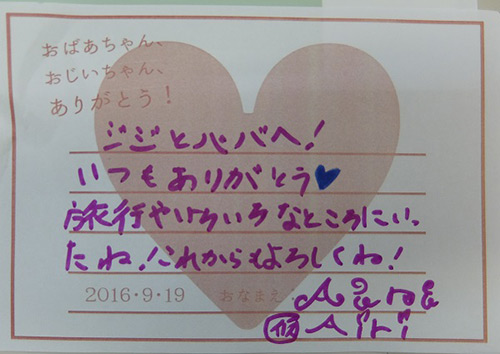 おばあちゃん、
おじいちゃん、
ありがとう！
ジジとババへ！
いつもありがとう♥
旅行やいろいろなところにいっ
たね！これからもよろしくね！
2016・9・19 おなまえ
Airi